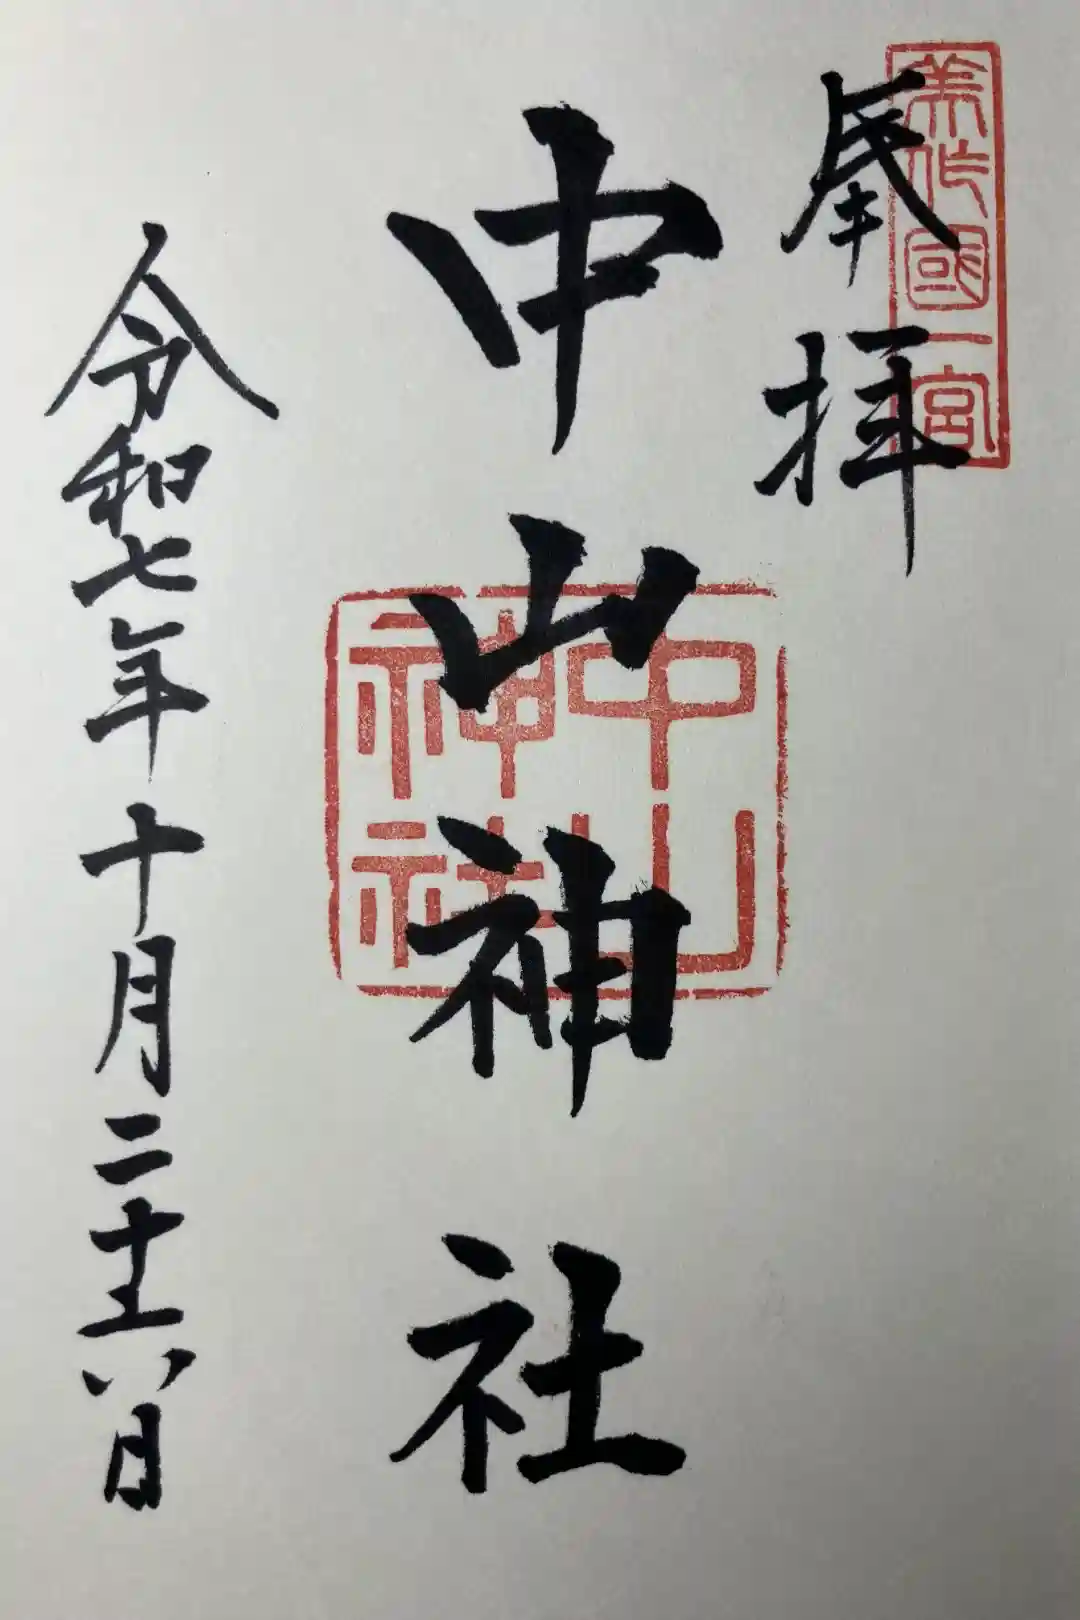 美作國一宮
奉拝
中山神社
中山
神社
令和七年十月二十六日